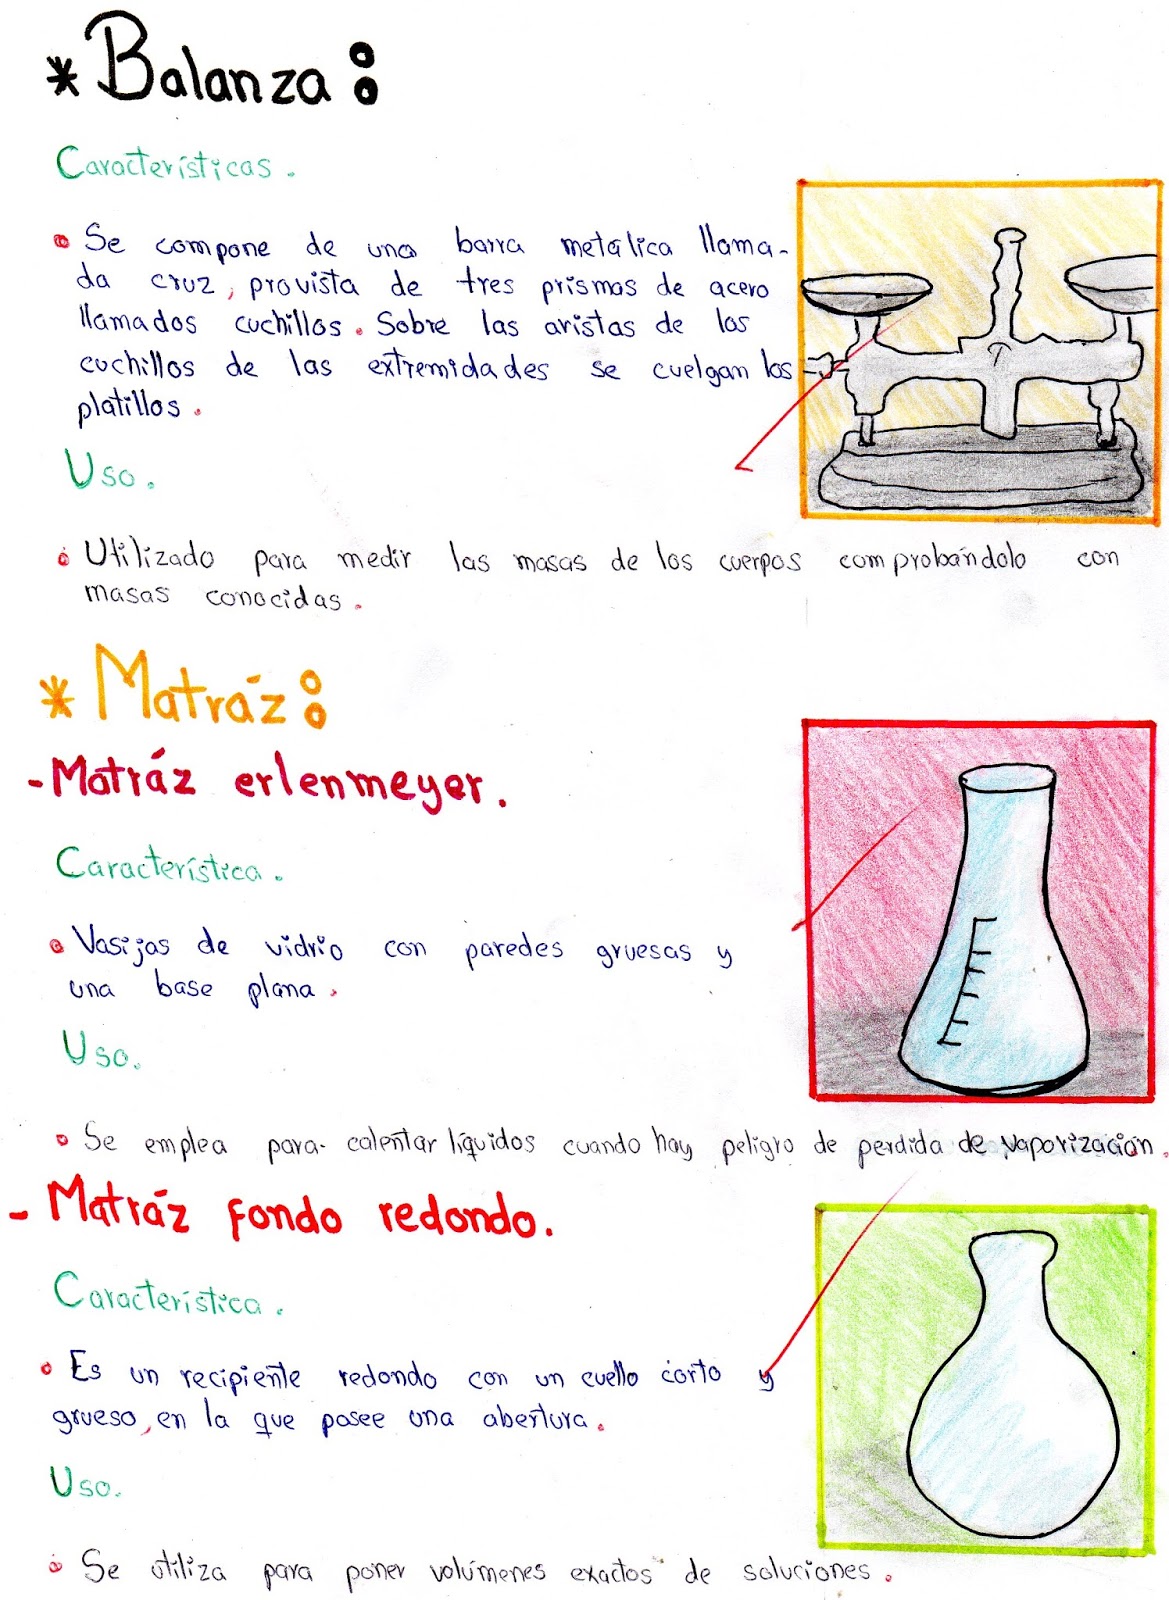 * Balanza:
Características.
• Se compone de una barra metálica llama-
da cruz, provista de tres prismas de acero
llamados cuchillos. Sobre las aristas de los
cuchillos de las extremidades se cuelgan los
platillos.
Uso.
• Utilizado para medir las masas de los cuerpos comprobándolo con
masas conocidas.
* Matráz:
- Matráz erlenmeyer.
Característica.
• Vasijas de vidrio con paredes gruesas y
una base plana.
Uso.
• Se emplea para calentar líquidos cuando hay peligro de perdida de vaporización.
- Matráz fondo redondo.
Característica.
• Es un recipiente redondo con un cuello corto y
grueso, en la que posee una abertura.
Uso.
• Se utiliza para poner volúmenes exactos de soluciones.